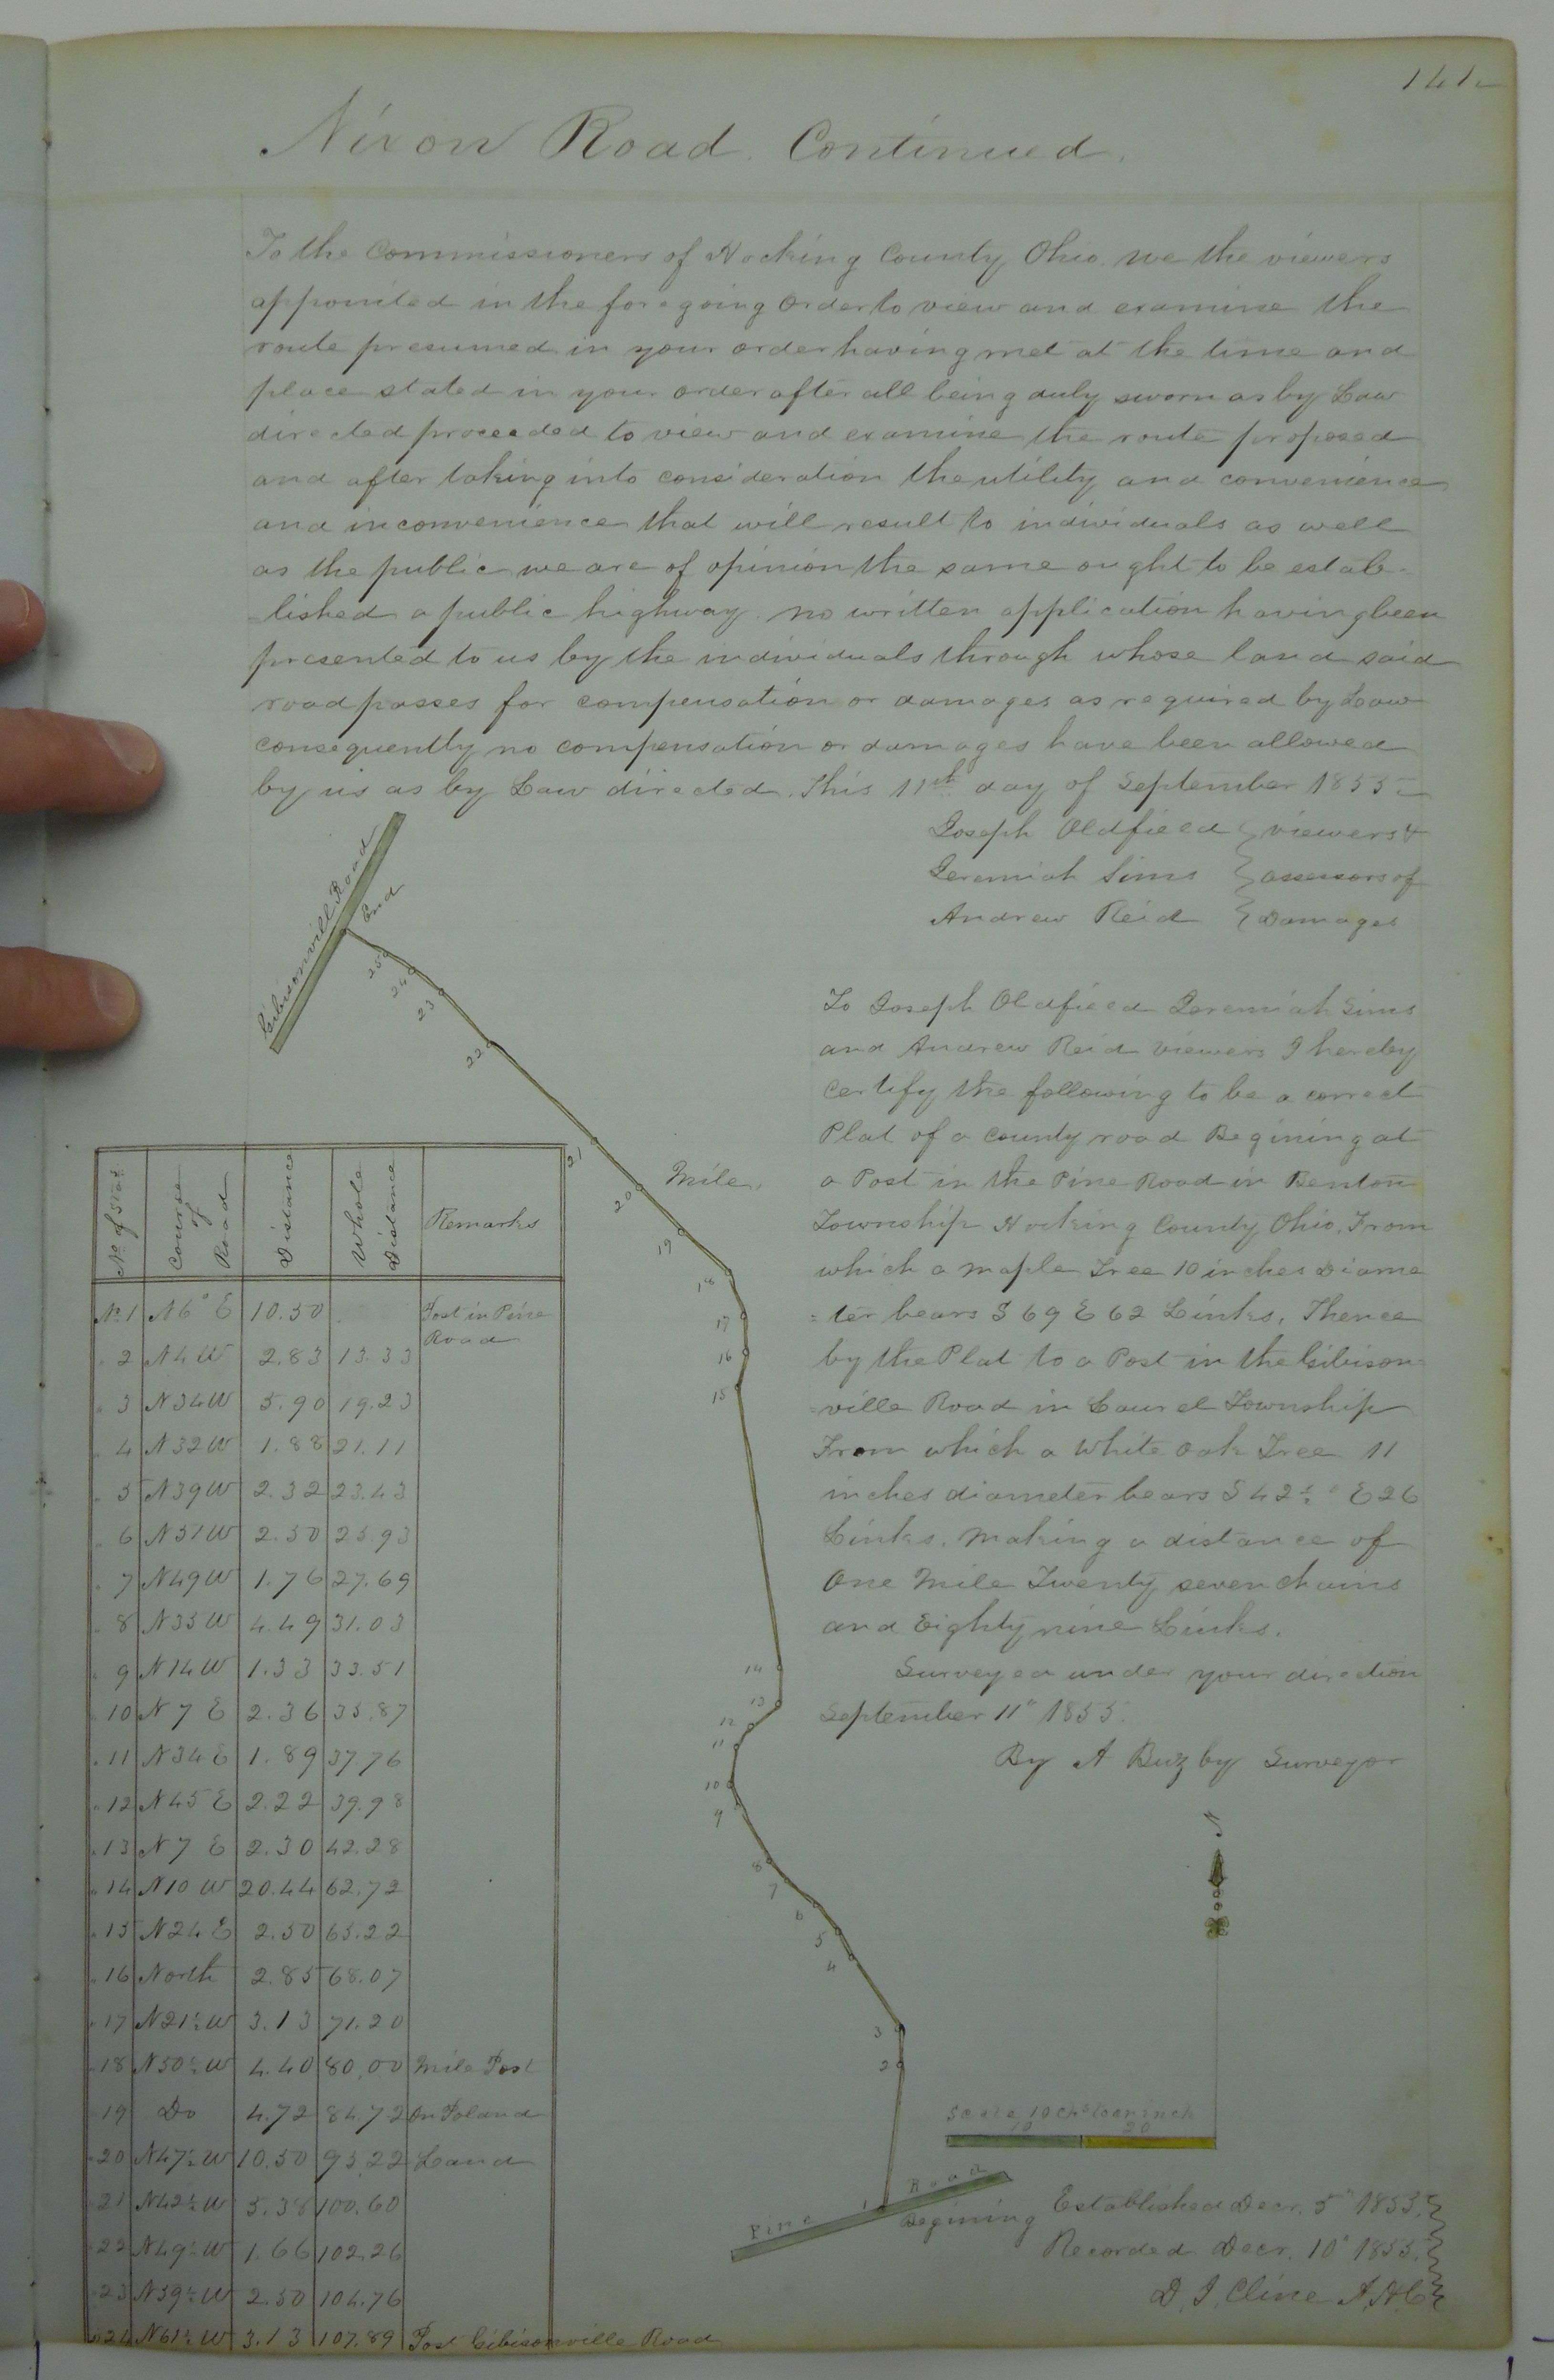 141
Nixon Road. Continued.
To the Commissioners of Hocking County Ohio. We the viewers
appointed in the foregoing Order to view and examine the
route presumed in your order having met at the time and
place stated in your order after all being duly sworn as by Law
directed proceeded to view and examine the route proposed
and after taking into consideration the utility and convenience
and inconvenience that will result to individuals as well
as the public we are of opinion the same ought to be estab-
-lished a public highway. no written application having been
presented to us by the individuals through whose land said
road passes for compensation or damages as required by Law
consequently no compensation or damages have been allowed
by us as by Law directed. This 11th day of September 1855
Joseph Oldfield } viewers &
Jeremiah Sims } assessors of
Andrew Reid } Damages
Gibisonvill Road
End
25
24
23
22
21
20
Mile.
19
18
17
16
15
14
13
12
11
10
9
8
7
6
5
4
3
2
1
Pine Road
Begining
To Joseph Oldfieed Jeremiah Sims
and Andrew Reid viewers I hereby
certify the following to be a correct
Plat of a county road Begining at
a Post in the Pine Road in Benton
Township Hocking County Ohio. From
which a maple Tree 10 inches Diame
=ter bears S 69 E 62 Links. Thence
by the Plat to a Post in the Gibison=
=ville Road in Laurel Township
From which a White oak Tree 11
inches diameter bears S 42½° E 26
Links. Making a distance of
One Mile Twenty seven chains
and Eighty nine Links.
Surveyed under your direction
September 11" 1855.
By A Buzby Surveyor
N
Scale 10 chs to an inch
10 20
Established Decr. 5" 1855.
Recorded Decr. 10" 1855.
D. J. Cline A.H.C.
No of Stas. Course of Road Distance Whole Distance Remarks
No 1 N6° E 10.50 Post in Pine Road
" 2 N4W 2.83 13.33
" 3 N34W 5.90 19.23
" 4 N32W 1.88 21.11
" 5 N39W 2.32 23.43
" 6 N51W 2.50 25.93
" 7 N49W 1.76 27.69
" 8 N35W 4.49 31.03
" 9 N14W 1.33 33.51
" 10 N 7 E 2.36 35.87
" 11 N34 E 1.89 37.76
" 12 N45 E 2.22 39.98
" 13 N 7 E 2.30 42.28
" 14 N10 W 20.44 62.72
" 15 N24 E 2.50 65.22
" 16 North 2.85 68.07
" 17 N21½W 3.13 71.20
" 18 N50½W 4.40 80.00 Mile Post
" 19 Do 4.72 84.72 On Poland
" 20 N47½W 10.50 95.22 Land
" 21 N42½W 5.38 100.60
" 22 N49½W 1.66 102.26
" 23 N59½W 2.50 104.76
" 24 N61½W 3.13 107.89 Post Gibisonville Road